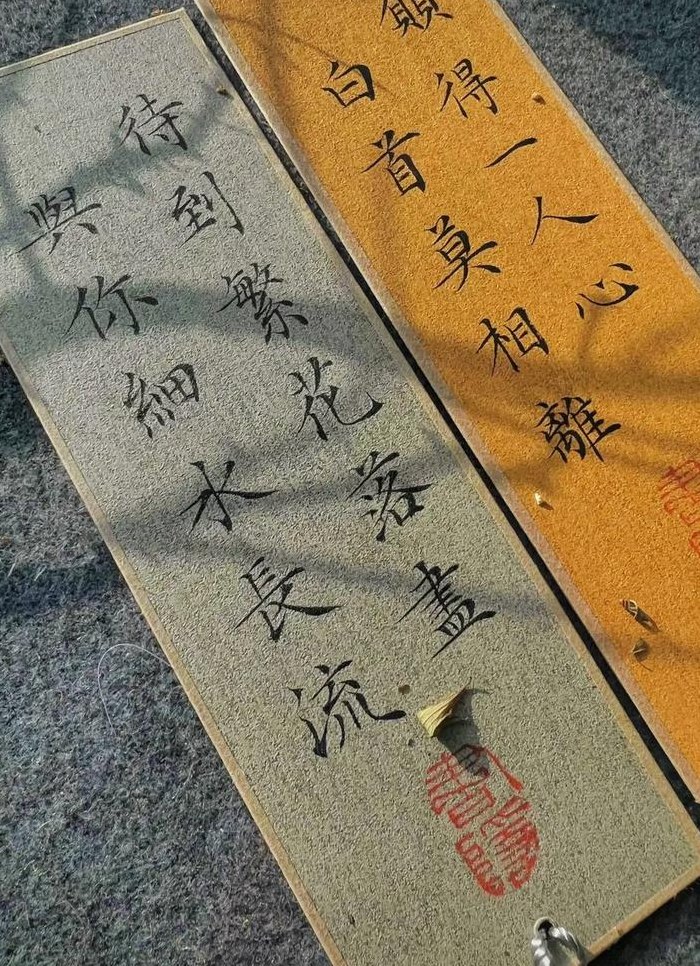 待到繁花落盡
與你細水長流
願得一人心
白首莫相離